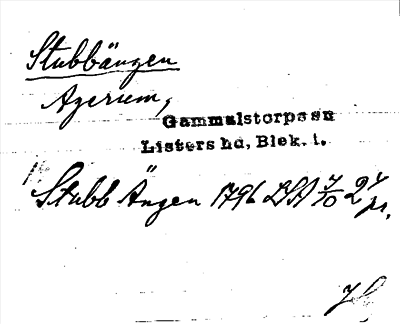 Stubbängen
Agerum,
Gammalstorps sn
Listers hd, Blek. l.
Stubb Ängen 1796 LSA 7/10 24
pr.